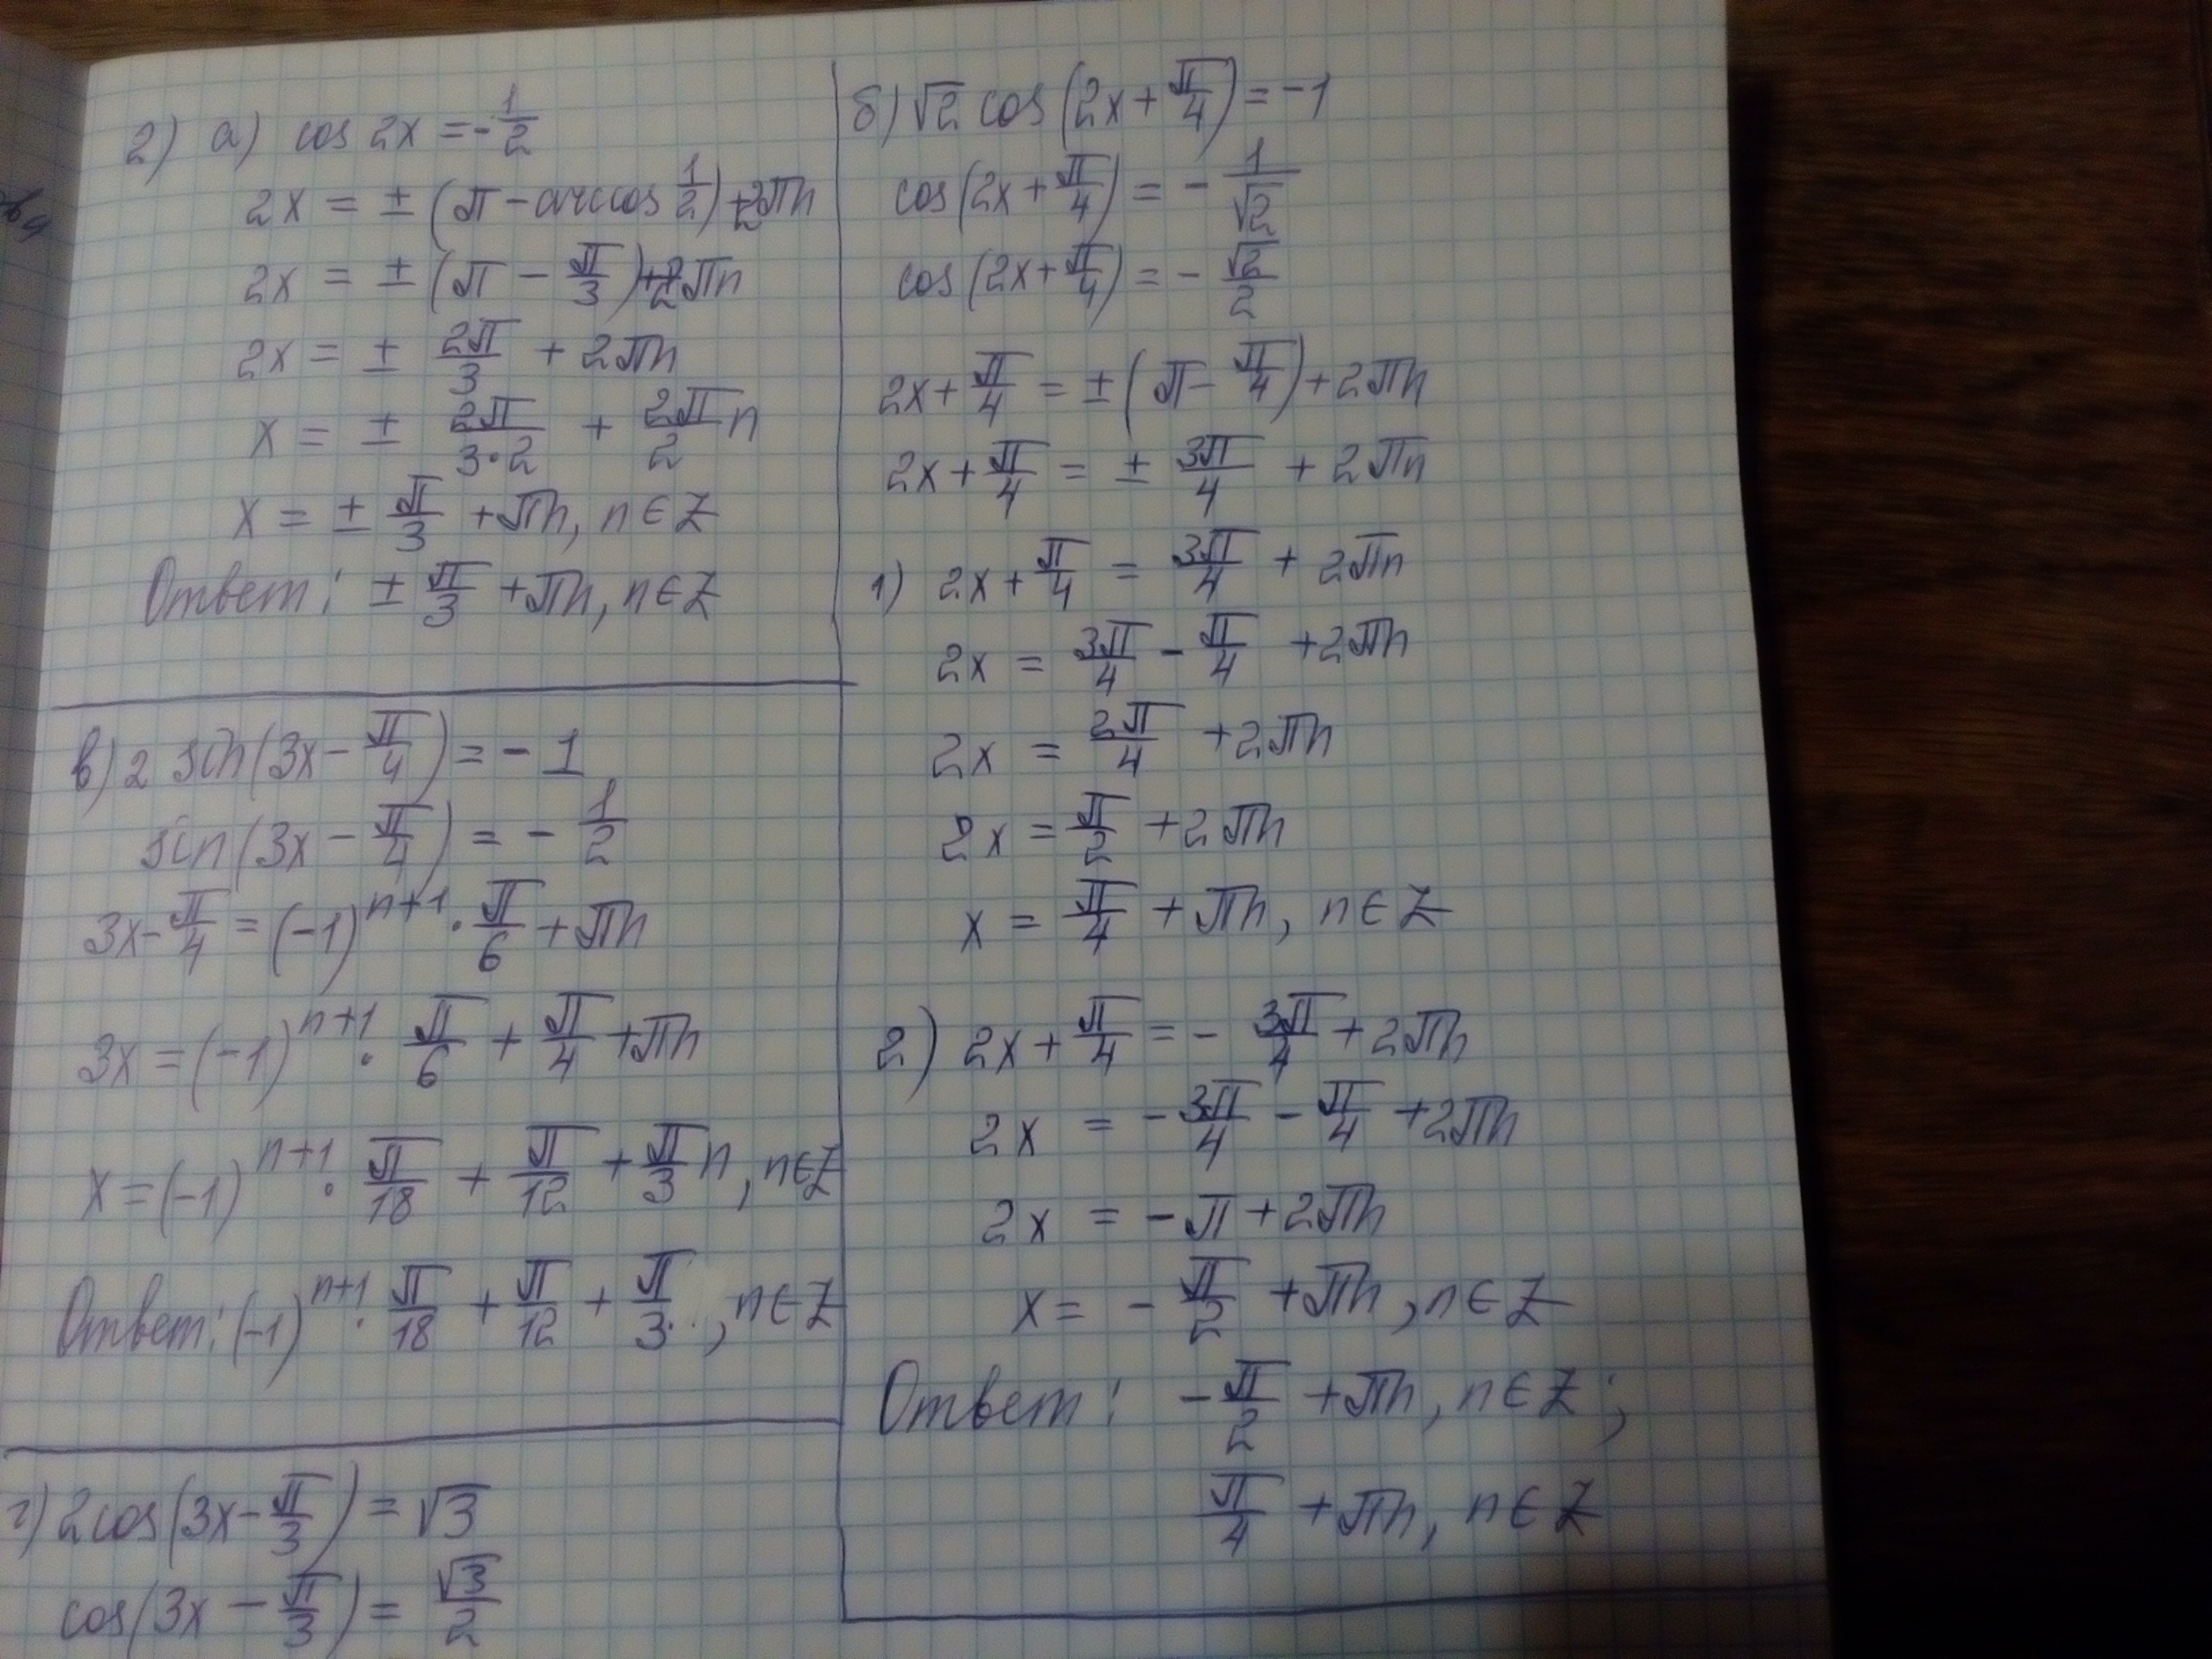 2) а) cos 2x = -1/2
2x = ± (π - arccos 1/2) + 2πn
2x = ± (π - π/3) + 2πn
2x = ± 2π/3 + 2πn
x = ± 2π/(3·2) + 2π/2 n
x = ± π/3 + πn, n∈Z
Ответ: ± π/3 + πn, n∈Z
в) 2 sin(3x - π/4) = - 1
sin(3x - π/4) = - 1/2
3x - π/4 = (-1)^(n+1) · π/6 + πn
3x = (-1)^(n+1) · π/6 + π/4 + πn
x = (-1)^(n+1) · π/18 + π/12 + π/3 n, n∈Z
Ответ: (-1)^(n+1) · π/18 + π/12 + π/3 , n∈Z
г) 2cos(3x - π/3) = √3
cos(3x - π/3) = √3/2
б) √2 cos(2x + π/4) = -1
cos(2x + π/4) = - 1/√2
cos(2x + π/4) = - √2/2
2x + π/4 = ± (π - π/4) + 2πn
2x + π/4 = ± 3π/4 + 2πn
1) 2x + π/4 = 3π/4 + 2πn
2x = 3π/4 - π/4 + 2πn
2x = 2π/4 + 2πn
2x = π/2 + 2πn
x = π/4 + πn, n∈Z
2) 2x + π/4 = - 3π/4 + 2πn
2x = - 3π/4 - π/4 + 2πn
2x = - π + 2πn
x = - π/2 + πn, n∈Z
Ответ: - π/2 + πn, n∈Z;
π/4 + πn, n∈Z